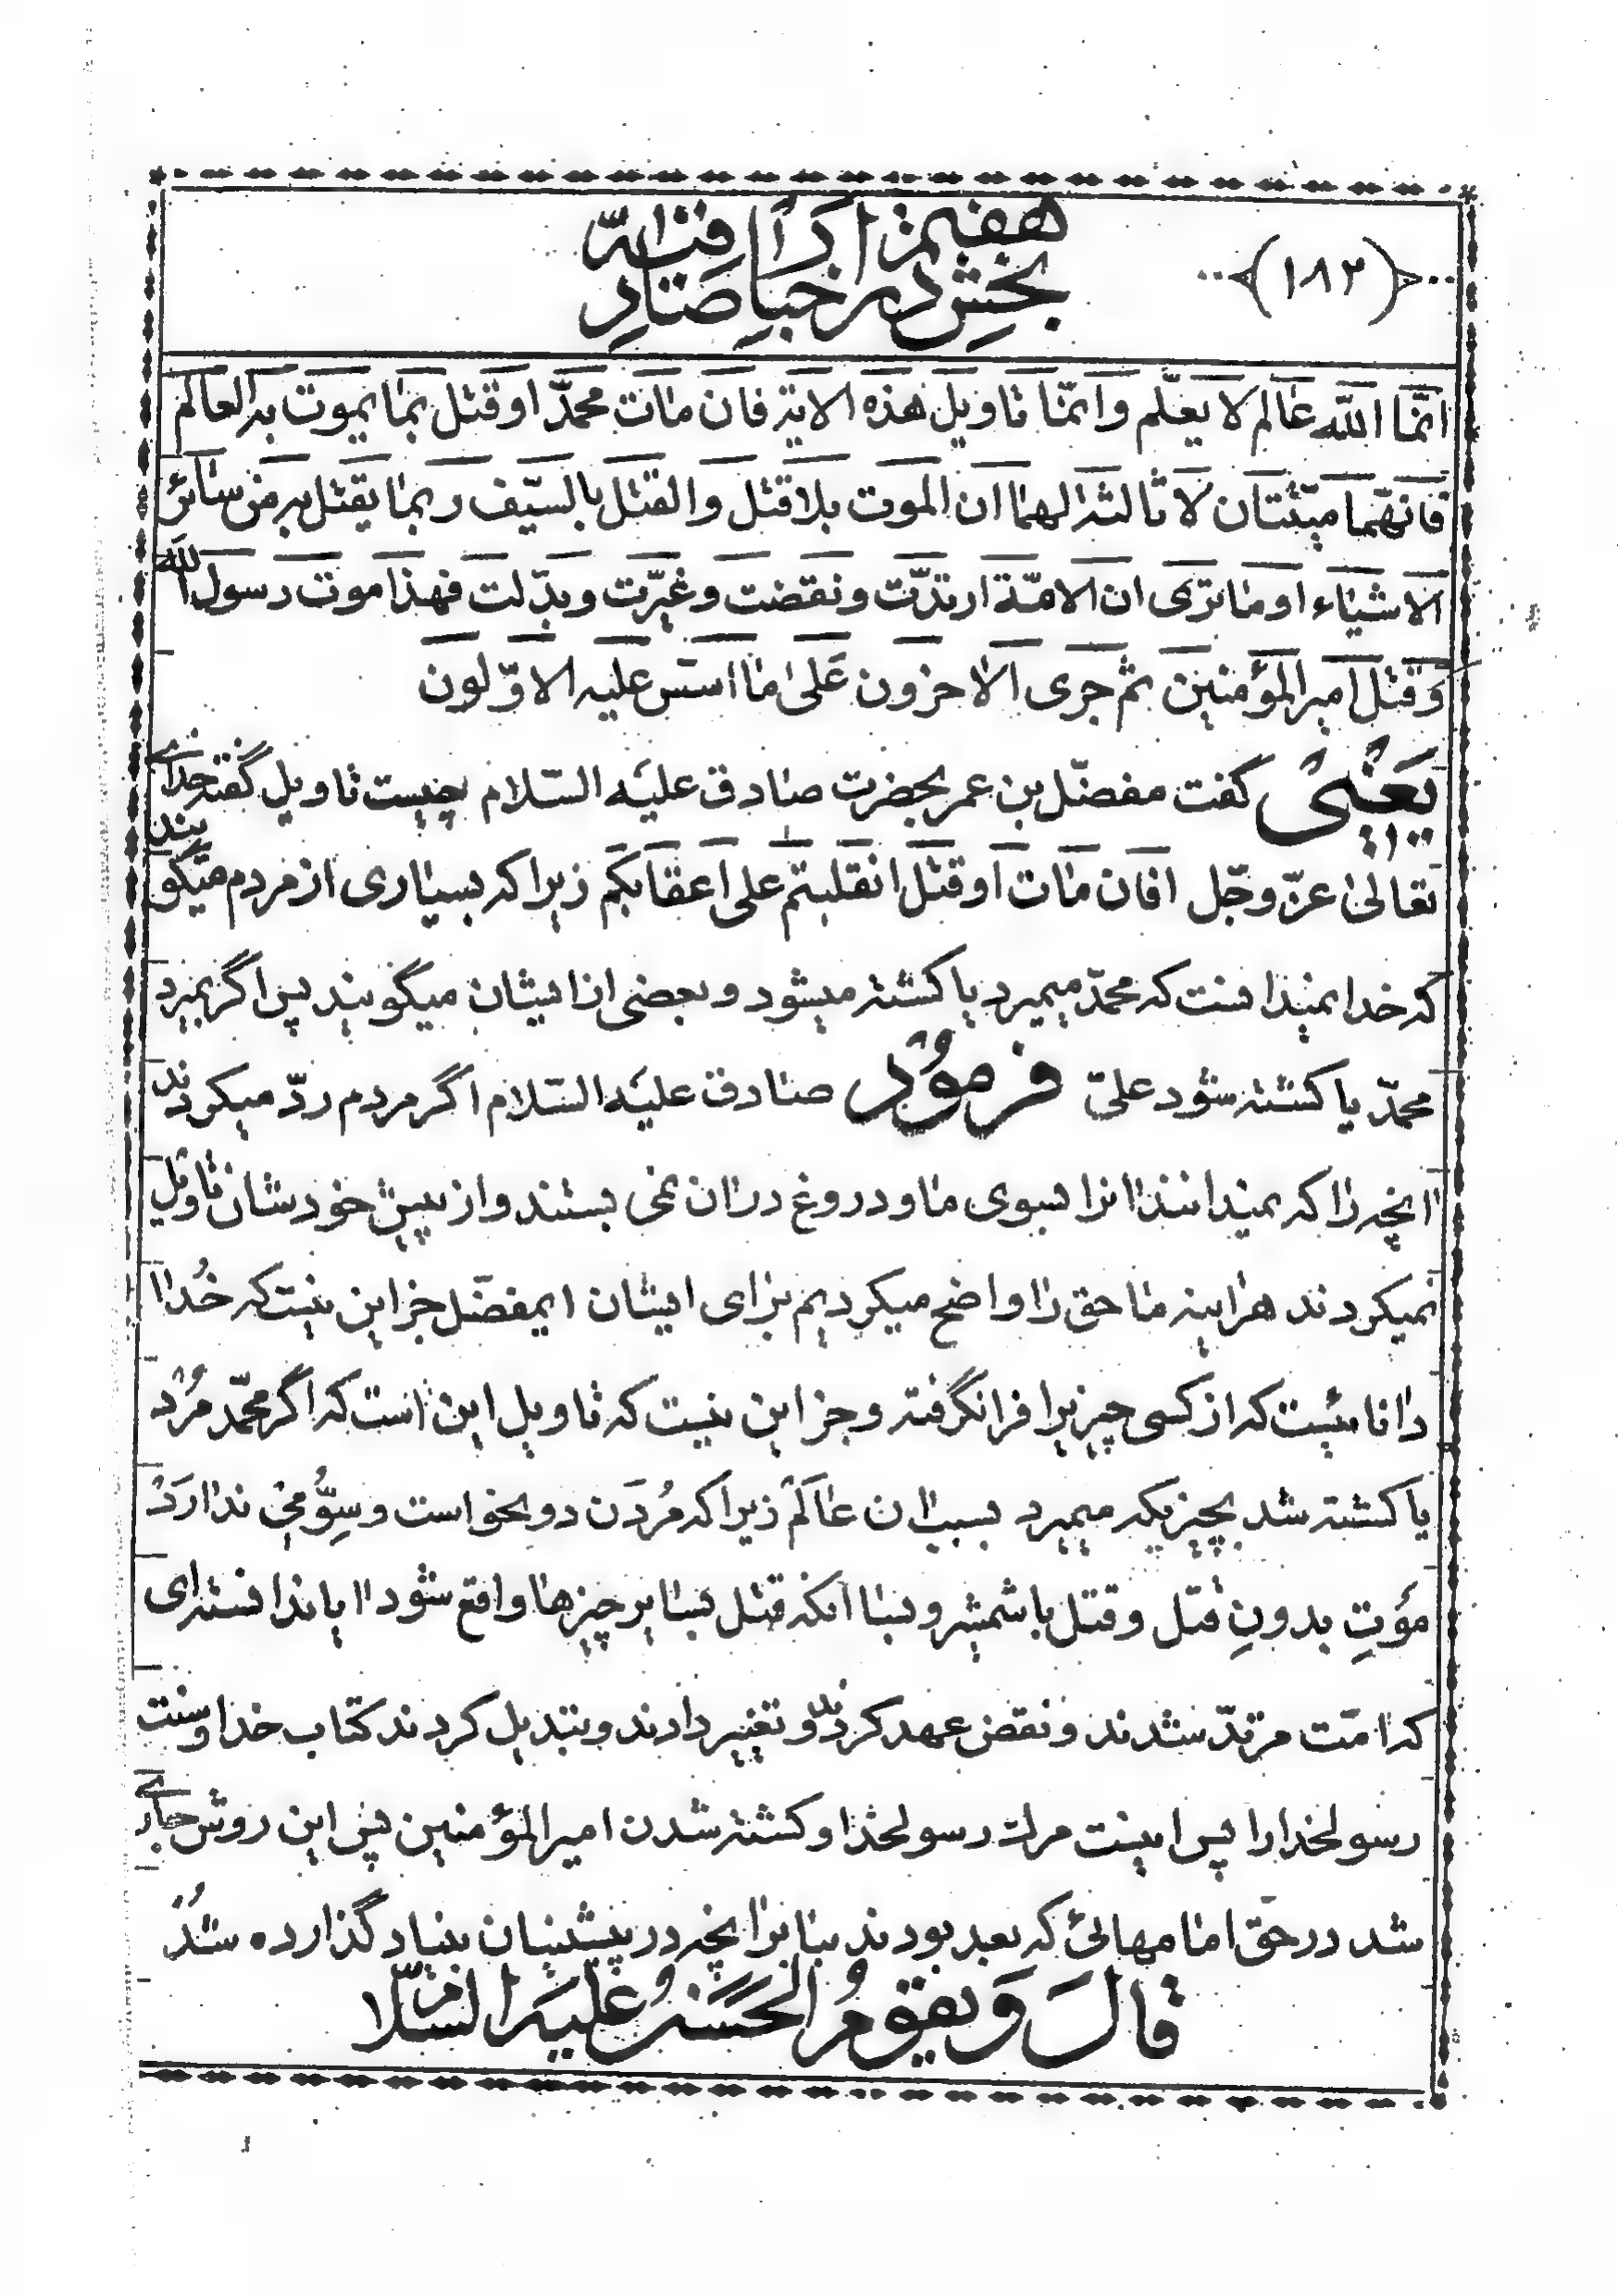 ﴿۱۸۲﴾
بخش هفتم در اخبار صادر
انّما اللّه عالم لا يعلّم وانّما تاويل هذه الاية فان مات محمّد او قتل بما يموت به العالم
فانهما ميتتان لا ثالثة لهما ان الموت بلا قتل والقتل بالسّيف ربما يقتل به من سائر
الاشياء او ما ترى ان الامّة ارتدّت ونقضت وغيّرت وبدّلت فهذا موت رسول اللّه
وقتل امير المؤمنين ثم جرى الاخرون على ما اسّس عليه الاوّلون
يعنى گفت مفضّل بن عمر بحضرت صادق عليه السّلام چيست تاويل گفته خداى
تعالى عزّ وجّل افان مات او قتل انقلبتم على اعقابكم زيرا كه بسيارى از مردم ميگويند
كه خدا ميدانست كه محمّد ميميرد يا كشته ميشود وبعضى از ايشان ميگويند پس اگر بميرد
محمّد يا كشته شود علىّ فرمود صادق عليه السّلام اگر مردم ردّ ميكردند
آنچه را كه نميدانند آنرا بسوى ما و دروغ در آن نمى بستند واز پيش خودشان تاويل
نميكردند هراينه ما حق را واضح ميكرديم براى ايشان ايمفضّل جز اين نيست كه خُدا
دانائيست كه از كسى چيزيرا فرا نگرفته وجز اين نيست كه تاويل اين است كه اگر محمّد مُرد
يا كشته شد بچيزيكه ميميرد بسبب آن عالَم زيرا كه مُردَن دو نحو است وسِوُّمى ندارَد
مؤتِ بدونِ قتل وقتل با شمشير وبسا آنكه قتل بساير چيزها واقع شود آيا ندانسته‌اى
كه امّت مرتدّ شدند ونقض عهد كردند وتغيير دادند وتبديل كردند كتاب خدا وسنت
رسولخدا را پس اينست مرگ رسولخدا وكشته شدن امير المؤمنين پس اين روش جارى
شد در حقّ امامهائى كه بعد بودند بنا بر آنچه در پيشينيان بنياد گذارده شُد
قالَ وَيقومُ الحَسَنُ عليه السّلام